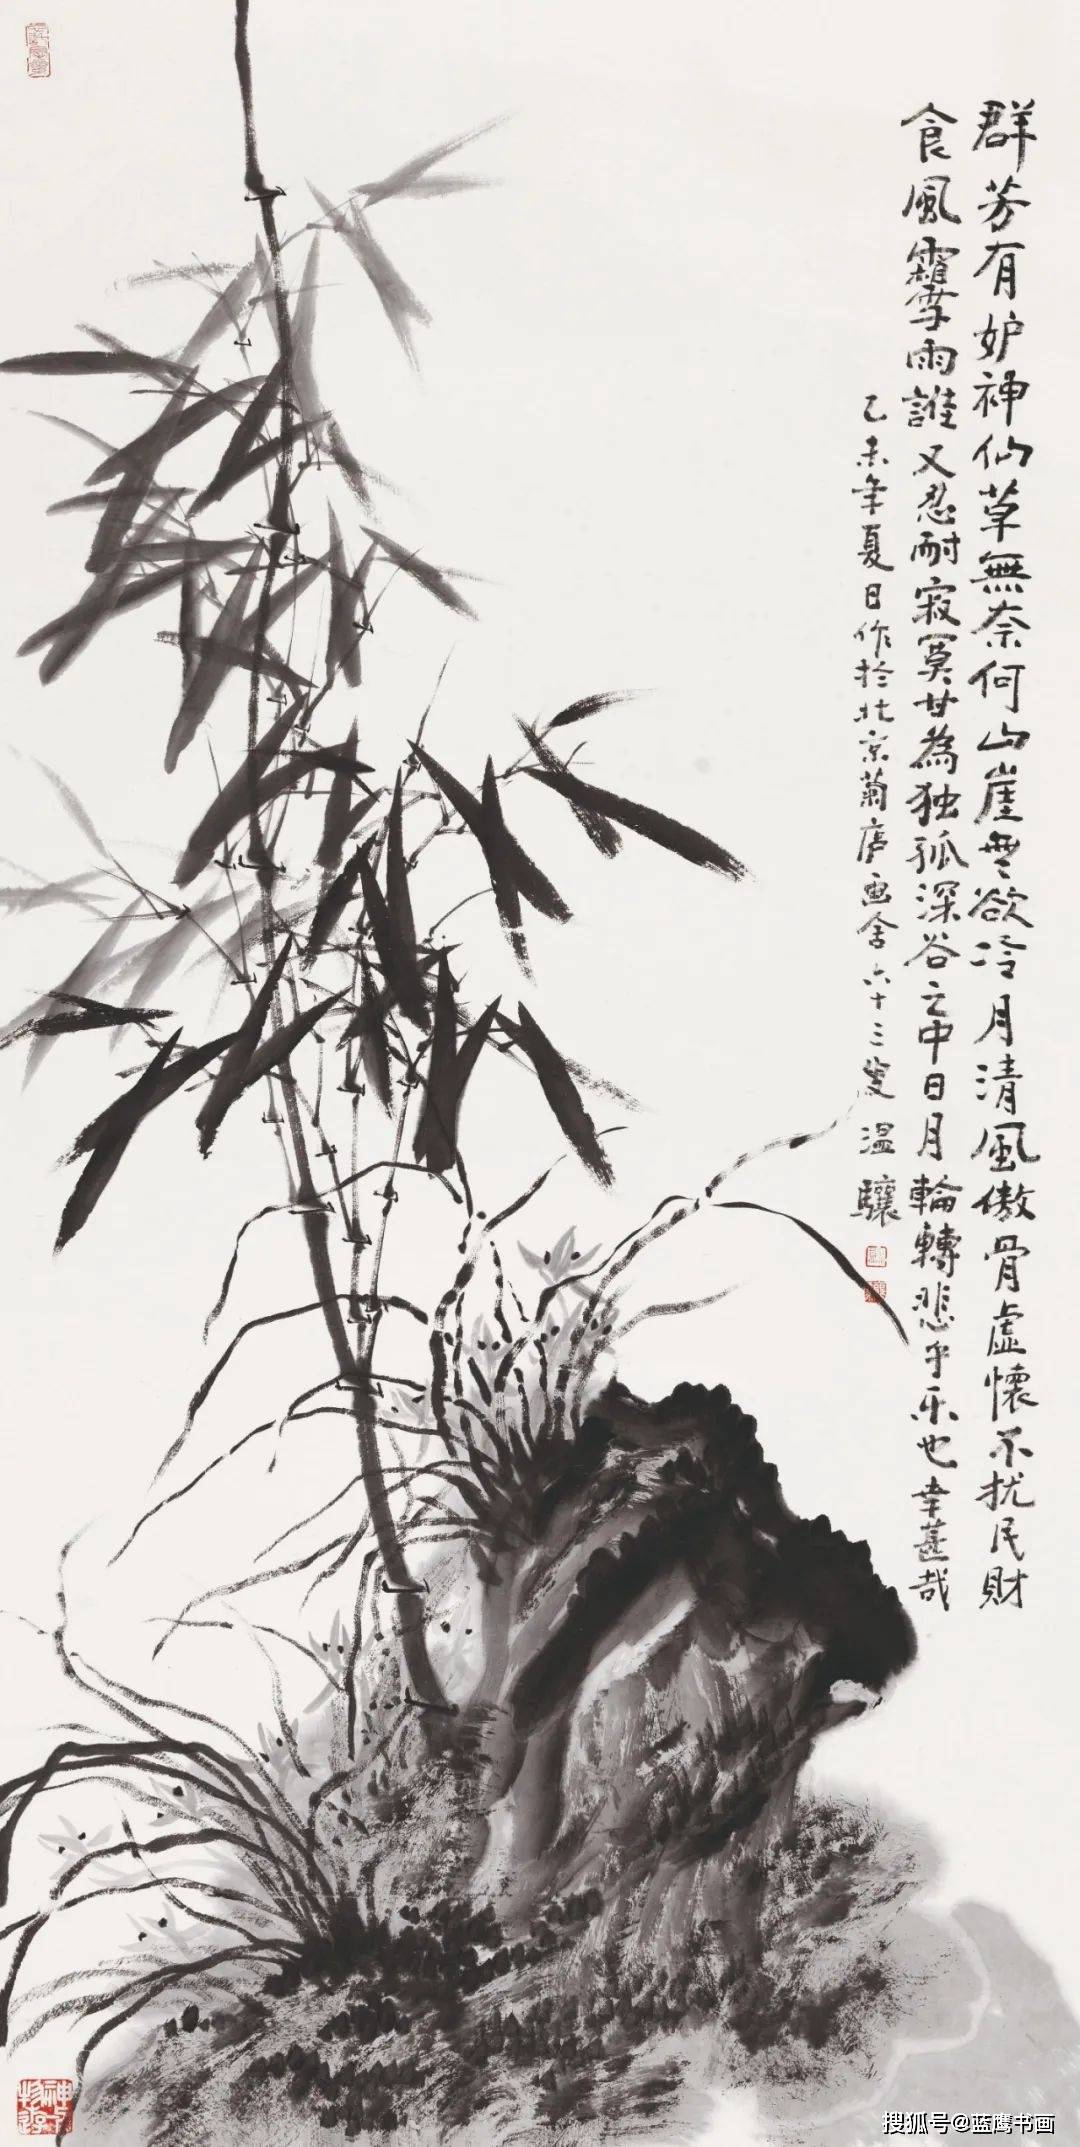 群芳有妒神仙草無奈何山崖無欲冷月清風傲骨虛懷不扰民財
食風霜雪雨誰又忍耐寂寞甘為独孤深谷之中日月輪轉悲乎乐也幸甚哉
乙未年夏日作於北京菊庐画舍六十三叟温驤
搜狐号@蓝鹰书画